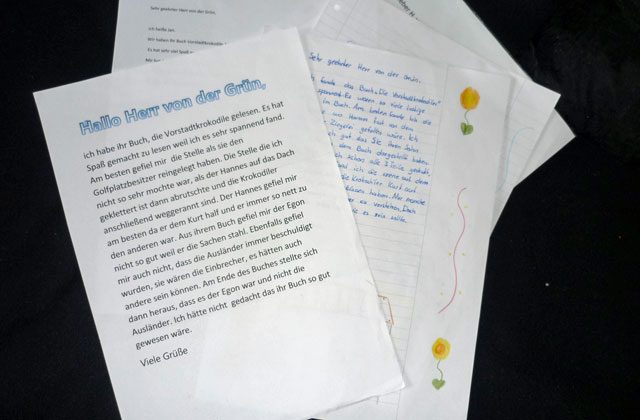 Hallo Herr von der Grün,
ich habe ihr Buch, die Vorstadtkrokodile gelesen. Es hat
Spaß gemacht zu lesen weil ich es sehr spannend fand.
Am besten gefiel mir die Stelle als sie den
Golfplatzbesitzer reingelegt haben. Die Stelle die ich
nicht so sehr mochte war, als der Hannes auf das Dach
geklettert ist dann abrutschte und die Krokodiler
anschließend weggerannt sind. Der Hannes gefiel mir
am besten da er dem Kurt half und er immer so nett zu
den anderen war. Aus ihrem Buch gefiel mir der Egon
nicht so gut weil er die Sachen stahl. Ebenfalls gefiel
mir auch nicht, dass die Ausländer immer beschuldigt
wurden, sie wären die Einbrecher, es hätten auch
andere sein können. Am Ende des Buches stellte sich
dann heraus, dass es der Egon war und nicht die
Ausländer. Ich hätte nicht gedacht das ihr Buch so gut
gewesen wäre.
Viele Grüße
Sehr geehrter Herr von der Grün,
ich heiße Jan.
Wir haben Ihr Buch Vorstadtkrokodile
Es hat sehr viel Spaß
Sehr geehrter Herr von der Grün,
fande das Buch „Die Vorstadtkrokodile"
spannend. Es waren so viele lustige
im Buch. Am besten fande ich die
wo Hannes fast von dem
Ziegeln gefallen wäre. Ich
gut das Sie Ihren Sohn
dem Buch dargestellt haben.
schon alle 3 Teile geguckt,
und ich die erste auf dem
die Krokodiler Kurt auf
haben. Mir manche
so verstehen. Doch
es sein sollte.